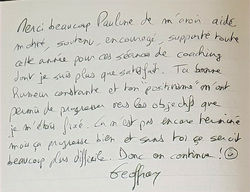 Merci beaucoup Pauline de m'avoir aidé,
motivé, soutenu, encouragé, supporté toute
cette année pour ces séances de coaching
dont je suis plus que satisfait. Ta bonne
humeur constante et ton "positivisme" m'ont
permis de progresser vers les objectifs que
je m'étais fixé. Ça n'est pas encore terminé
mais ça progresse bien et sans toi ça serait
beaucoup plus difficile. Donc on continue !
Geoffrey